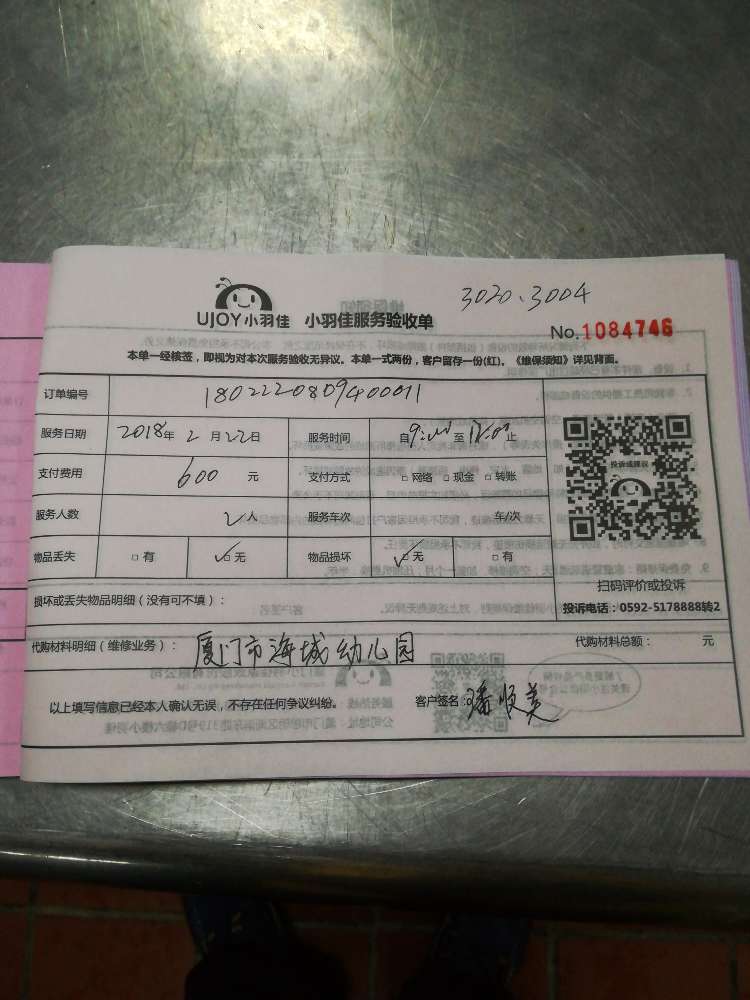 3020、3004
UJOY小羽佳 小羽佳服务验收单
No.1084746
本单一经核签，即视为对本次服务验收无异议。本单一式两份，客户留存一份(红)。《维保须知》详见背面。
订单编号 1802220809400011
服务日期 2018年 2月 22日 服务时间 自9:00至 止
支付费用 600 元 支付方式 □网络 □现金 □转账
服务人数 2人 服务车次 车/次
物品丢失 □有 ☑无 物品损坏 ☑无 □有
投诉或建议
扫码评价或投诉
投诉电话：0592-5178888转2
损坏或丢失物品明细（没有可不填）：
代购材料明细（维修业务）： 厦门市海城幼儿园 代购材料总额： 元
以上填写信息已经本人确认无误，不存在任何争议纠纷。 客户签名：潘顺美